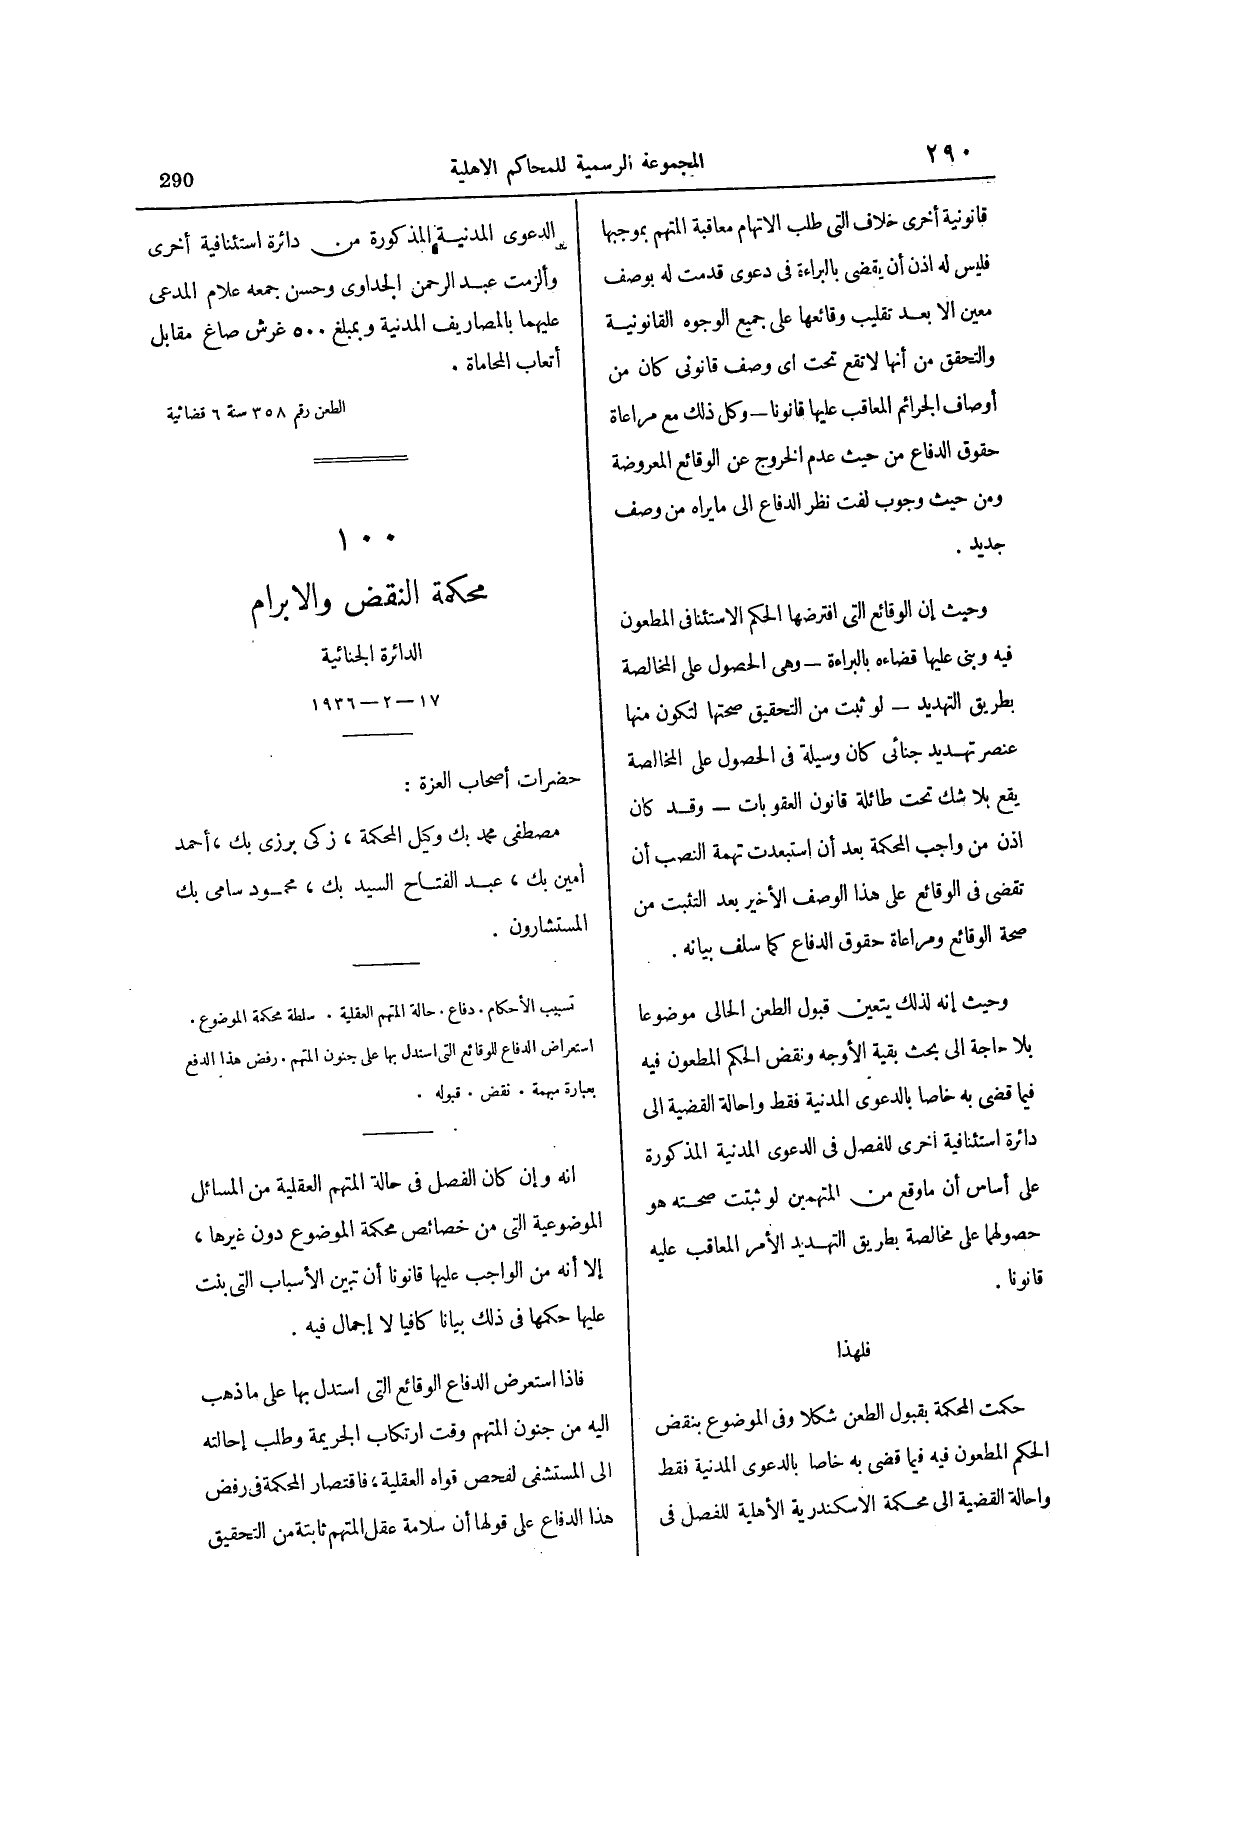 ٢٩٠
المجموعة الرسمية للمحاكم الاهلية
290
قانونية أخرى خلاف التى طلب الاتهام معاقبة المتهم بموجبها
فليس له اذن أن يقضى بالبراءة فى دعوى قدمت له بوصف
معين الا بعد تقليب وقائعها على جميع الوجوه القانونية
والتحقق من أنها لاتقع تحت اى وصف قانونى كان من
أوصاف الجرائم المعاقب عليها قانونا — وكل ذلك مع مراعاة
حقوق الدفاع من حيث عدم الخروج عن الوقائع المعروضة
ومن حيث وجوب لفت نظر الدفاع الى مايراه من وصف
جديد .
وحيث إن الوقائع التى افترضها الحكم الاستئنافى المطعون
فيه وبنى عليها قضاءه بالبراءة — وهى الحصول على المخالصة
بطريق التهديد — لو ثبت من التحقيق صحتها لتكون منها
عنصر تهديد جنائى كان وسيلة فى الحصول على المخالصة
يقع بلا شك تحت طائلة قانون العقوبات — وقد كان
اذن من واجب المحكمة بعد أن استبعدت تهمة النصب أن
تقضى فى الوقائع على هذا الوصف الأخير بعد التثبت من
صحة الوقائع ومراعاة حقوق الدفاع كما سلف بيانه .
وحيث إنه لذلك يتعين قبول الطعن الحالى موضوعا
بلا حاجة الى بحث بقية الأوجه ونقض الحكم المطعون فيه
فيما قضى به خاصا بالدعوى المدنية فقط واحالة القضية الى
دائرة استئنافية أخرى للفصل فى الدعوى المدنية المذكورة
على أساس أن ماوقع من المتهمين لو ثبتت صحته هو
حصولهما على مخالصة بطريق التهديد الأمر المعاقب عليه
قانونا .
فلهذا
حكمت المحكمة بقبول الطعن شكلا وفى الموضوع بنقض
الحكم المطعون فيه فيما قضى به خاصا بالدعوى المدنية فقط
واحالة القضية الى محكمة الاسكندرية الأهلية للفصل فى
الدعوى المدنية المذكورة من دائرة استئنافية أخرى
وألزمت عبد الرحمن الجداوى وحسن جمعه علام المدعى
عليهما بالمصاريف المدنية وبمبلغ ٥٠٠ غرش صاغ مقابل
أتعاب المحاماة .
الطعن رقم ٣٥٨ سنة ٦ قضائية
١٠٠
محكمة النقض والابرام
الدائرة الجنائية
١٧ — ٢ — ١٩٣٦
حضرات أصحاب العزة :
مصطفى محمد بك وكيل المحكمة ، زكى برزى بك ، أحمد
أمين بك ، عبد الفتاح السيد بك ، محمود سامى بك
المستشارون .
تسبيب الأحكام . دفاع . حالة المتهم العقلية . سلطة محكمة الموضوع .
استعراض الدفاع للوقائع التى استدل بها على جنون المتهم . رفض هذا الدفع
بعبارة مبهمة . نقض . قبوله .
انه وإن كان الفصل فى حالة المتهم العقلية من المسائل
الموضوعية التى من خصائص محكمة الموضوع دون غيرها ،
إلا أنه من الواجب عليها قانونا أن تبين الأسباب التى بنت
عليها حكمها فى ذلك بيانا كافيا لا إجمال فيه .
فاذا استعرض الدفاع الوقائع التى استدل بها على ماذهب
اليه من جنون المتهم وقت ارتكاب الجريمة وطلب إحالته
الى المستشفى لفحص قواه العقلية ، فاقتصار المحكمة فى رفض
هذا الدفاع على قولها أن سلامة عقل المتهم ثابتة من التحقيق